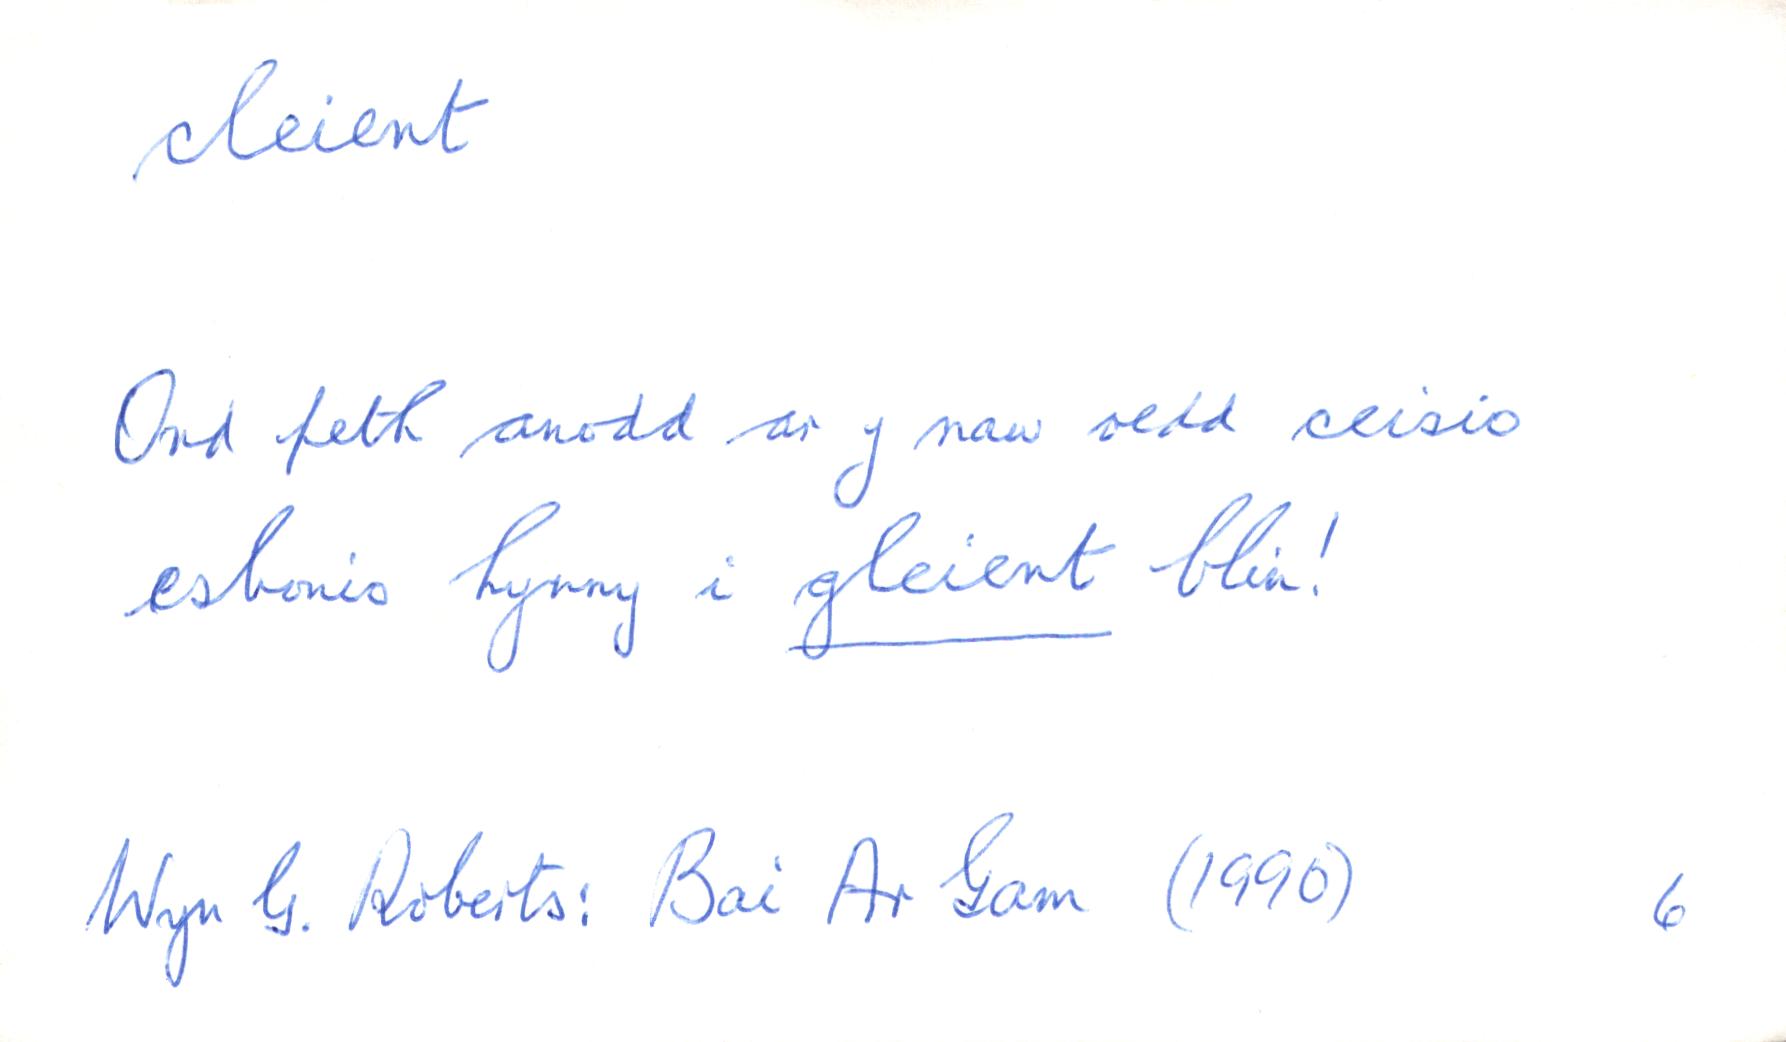 cleient
Ond peth anodd ar y naw oedd ceisio
esbonio hynny i gleient blin!
Wyn G. Roberts: Bai Ar Gam (1990) 6